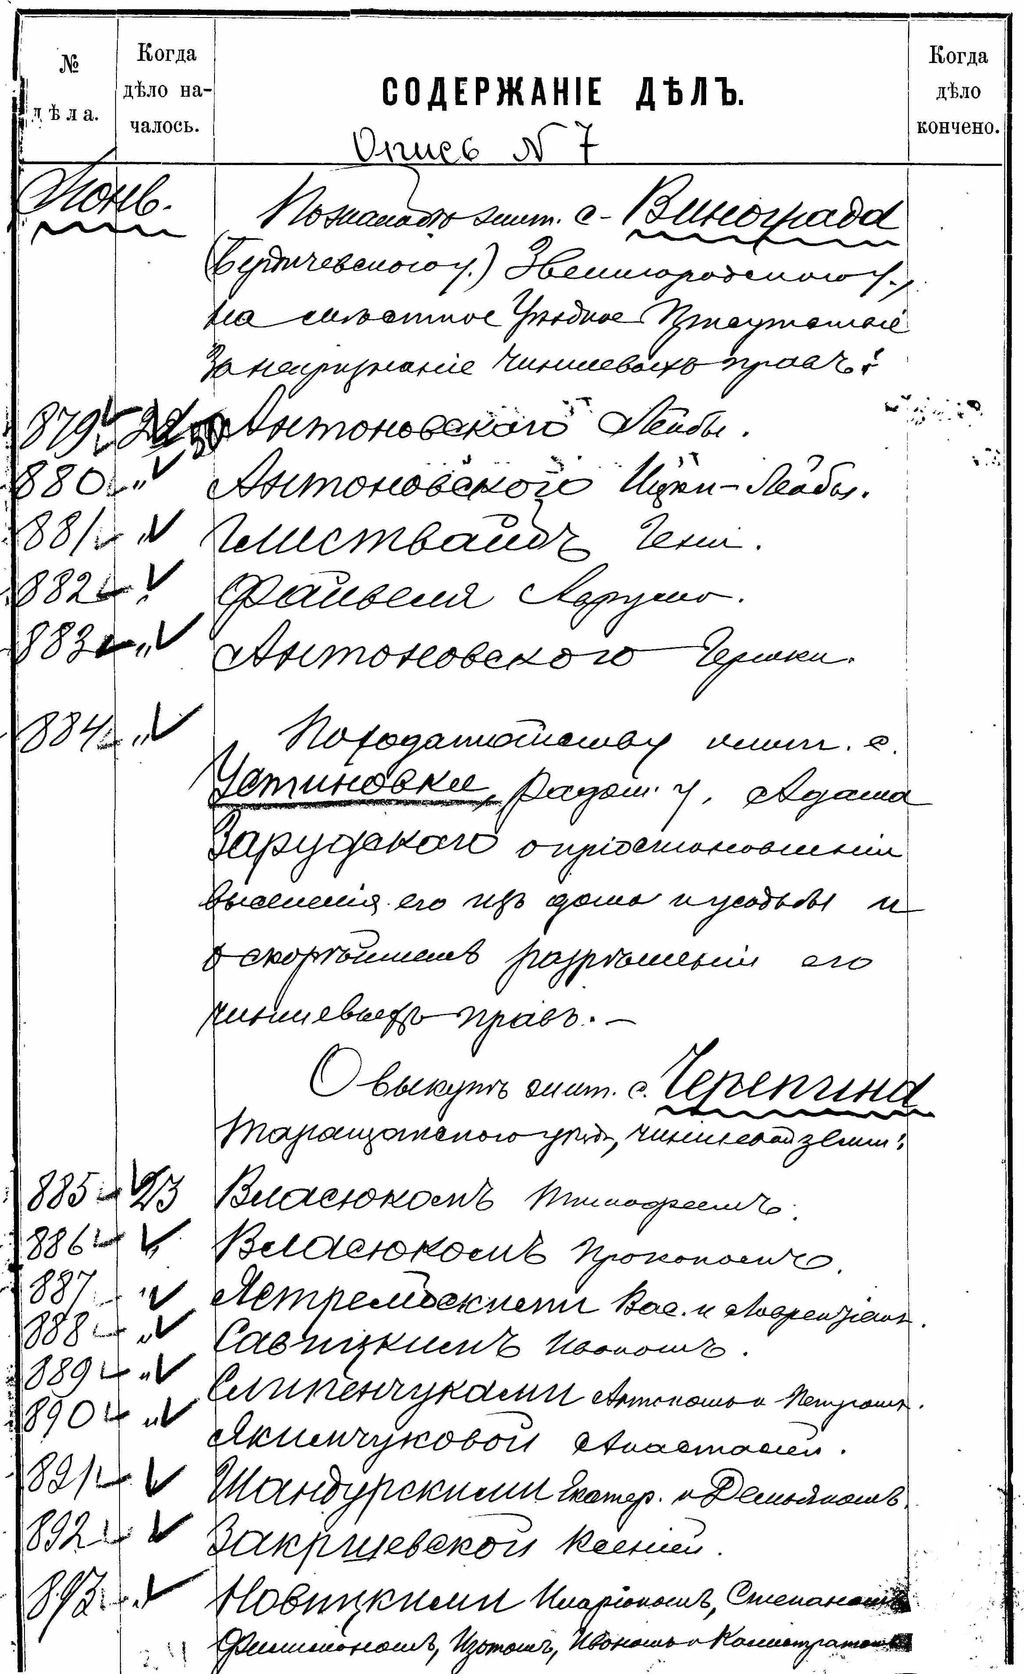 № дѣла.
Когда дѣло началось.
СОДЕРЖАНІЕ ДѢЛЪ.
Когда дѣло кончено.
Опись N 7
По жалобѣ жит. с. Винограда
(Бердичевского у.) Звенигородского у.,
на мѣстное Уѣздное Присутствіе
за непризнаніе чиншевыхъ правъ:
879 22 Антоновского Лейбы.
880 " Антоновского Ицки-Лейбы.
881 " Гени.
882 " Файвеля
883 " Антоновского Гершки.
884 " По ходатайству жит. с.
Устиновки, Радом. у. Адама
Зарудзкого о пріостановленіи
выселенія его изъ дома и усадьбы и
о скорѣйшемъ разрѣшеніи его
чиншевыхъ правъ. —
О выкупѣ жит. с. Черепина
Таращанского уѣзда, чиншевой земли:
885 23 Власюкомъ Тимофеемъ.
886 " Власюкомъ Прокопомъ.
887 " Ястрембскими Вас. и Лаврентіемъ.
888 " Савицкимъ Иваномъ.
889 " Слипенчуками Антономъ и Петромъ.
890 " Якимчуковой Анастасіей.
891 " Шандурскими Екатер. и Демьяномъ
892 " Закржевской Ксеніей.
893 " Новицкими Иларіономъ, Степаномъ
Филимономъ, Изотомъ, Иваномъ и Калистратомъ